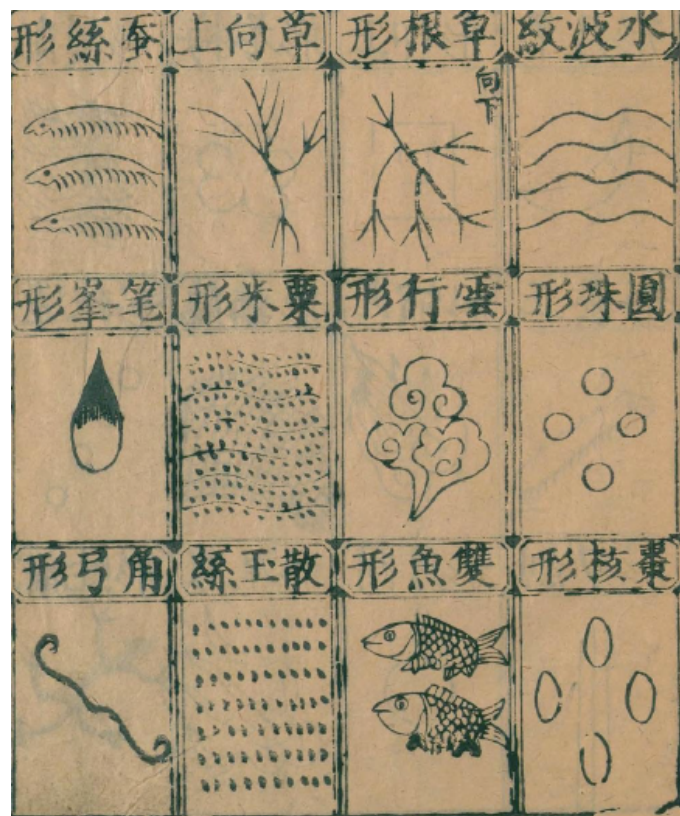 水波紋
草根形
向下
草向上
蚕絲形
圓珠形
雲行形
粟米形
笔峯形
棗核形
雙魚形
散玉絲
角弓形